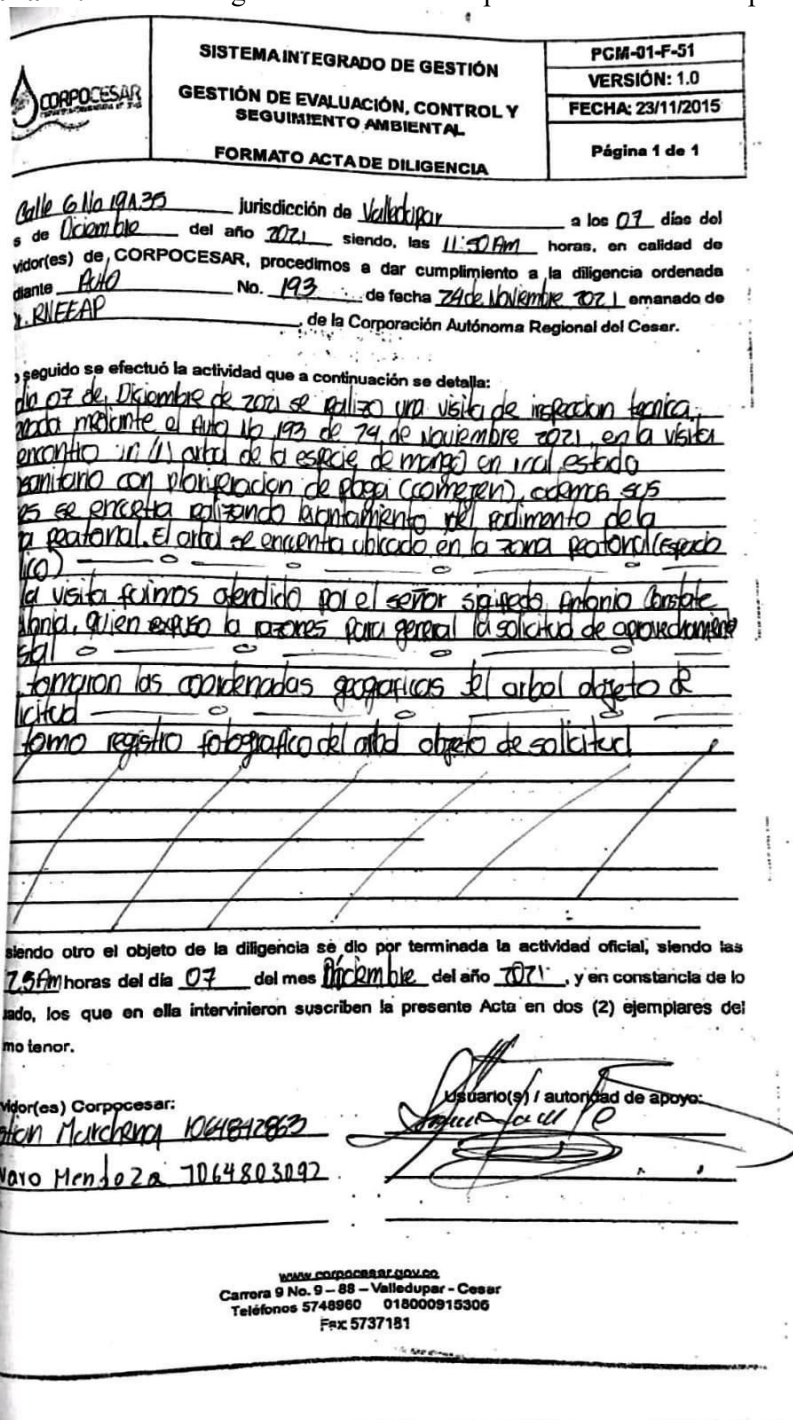 CORPOCESAR
SISTEMA INTEGRADO DE GESTIÓN
GESTIÓN DE EVALUACIÓN, CONTROL Y
SEGUIMIENTO AMBIENTAL
FORMATO ACTA DE DILIGENCIA
PCM-01-F-51
VERSIÓN: 1.0
FECHA: 23/11/2015
Página 1 de 1
Calle 6 No 19A35 jurisdicción de Valledupar a los 07 días del
s de Diciembre del año 2021 siendo, las 11:50 Am horas, en calidad de
vidor(es) de CORPOCESAR, procedimos a dar cumplimiento a la diligencia ordenada
diante Auto No. 193 de fecha 24 de Noviembre 2021 emanado de
RNEEAP, de la Corporación Autónoma Regional del Cesar.
seguido se efectuó la actividad que a continuación se detalla:
dia 07 de Diciembre de 2021 se realizo una visita de inspeccion tecnica,
nada mediante el Auto No 193 de 24 de Noviembre 2021, en la visita
encontro un (1) arbol de la especie de mango en mal estado
sanitario con proliferacion de plaga (comejen), ademas sus
es se encuentra realizando levantamiento del pavimento de la
a peatonal. El arbol se encuentra ubicado en la zona peatonal (espacio
ico)
la visita fuimos atendido por el señor Antonio
quien expuso la razones para generar la solicitud de aprovechamiento
stal
tomaron las coordenadas geograficas del arbol objeto de
licitud
tomo registro fotografico del arbol objeto de solicitud
siendo otro el objeto de la diligencia se dio por terminada la actividad oficial, siendo las
horas del día 07 del mes Diciembre del año 2021, y en constancia de lo
uado, los que en ella intervinieron suscriben la presente Acta en dos (2) ejemplares del
mo tenor.
vidor(es) Corpocesar:
Usuario(s) / autoridad de apoyo:
Marchena 1064842863
varo Mendoza 1064803092
www.corpocesar.gov.co
Carrera 9 No. 9 – 88 – Valledupar - Cesar
Teléfonos 5748960 018000915306
Fax 5737181